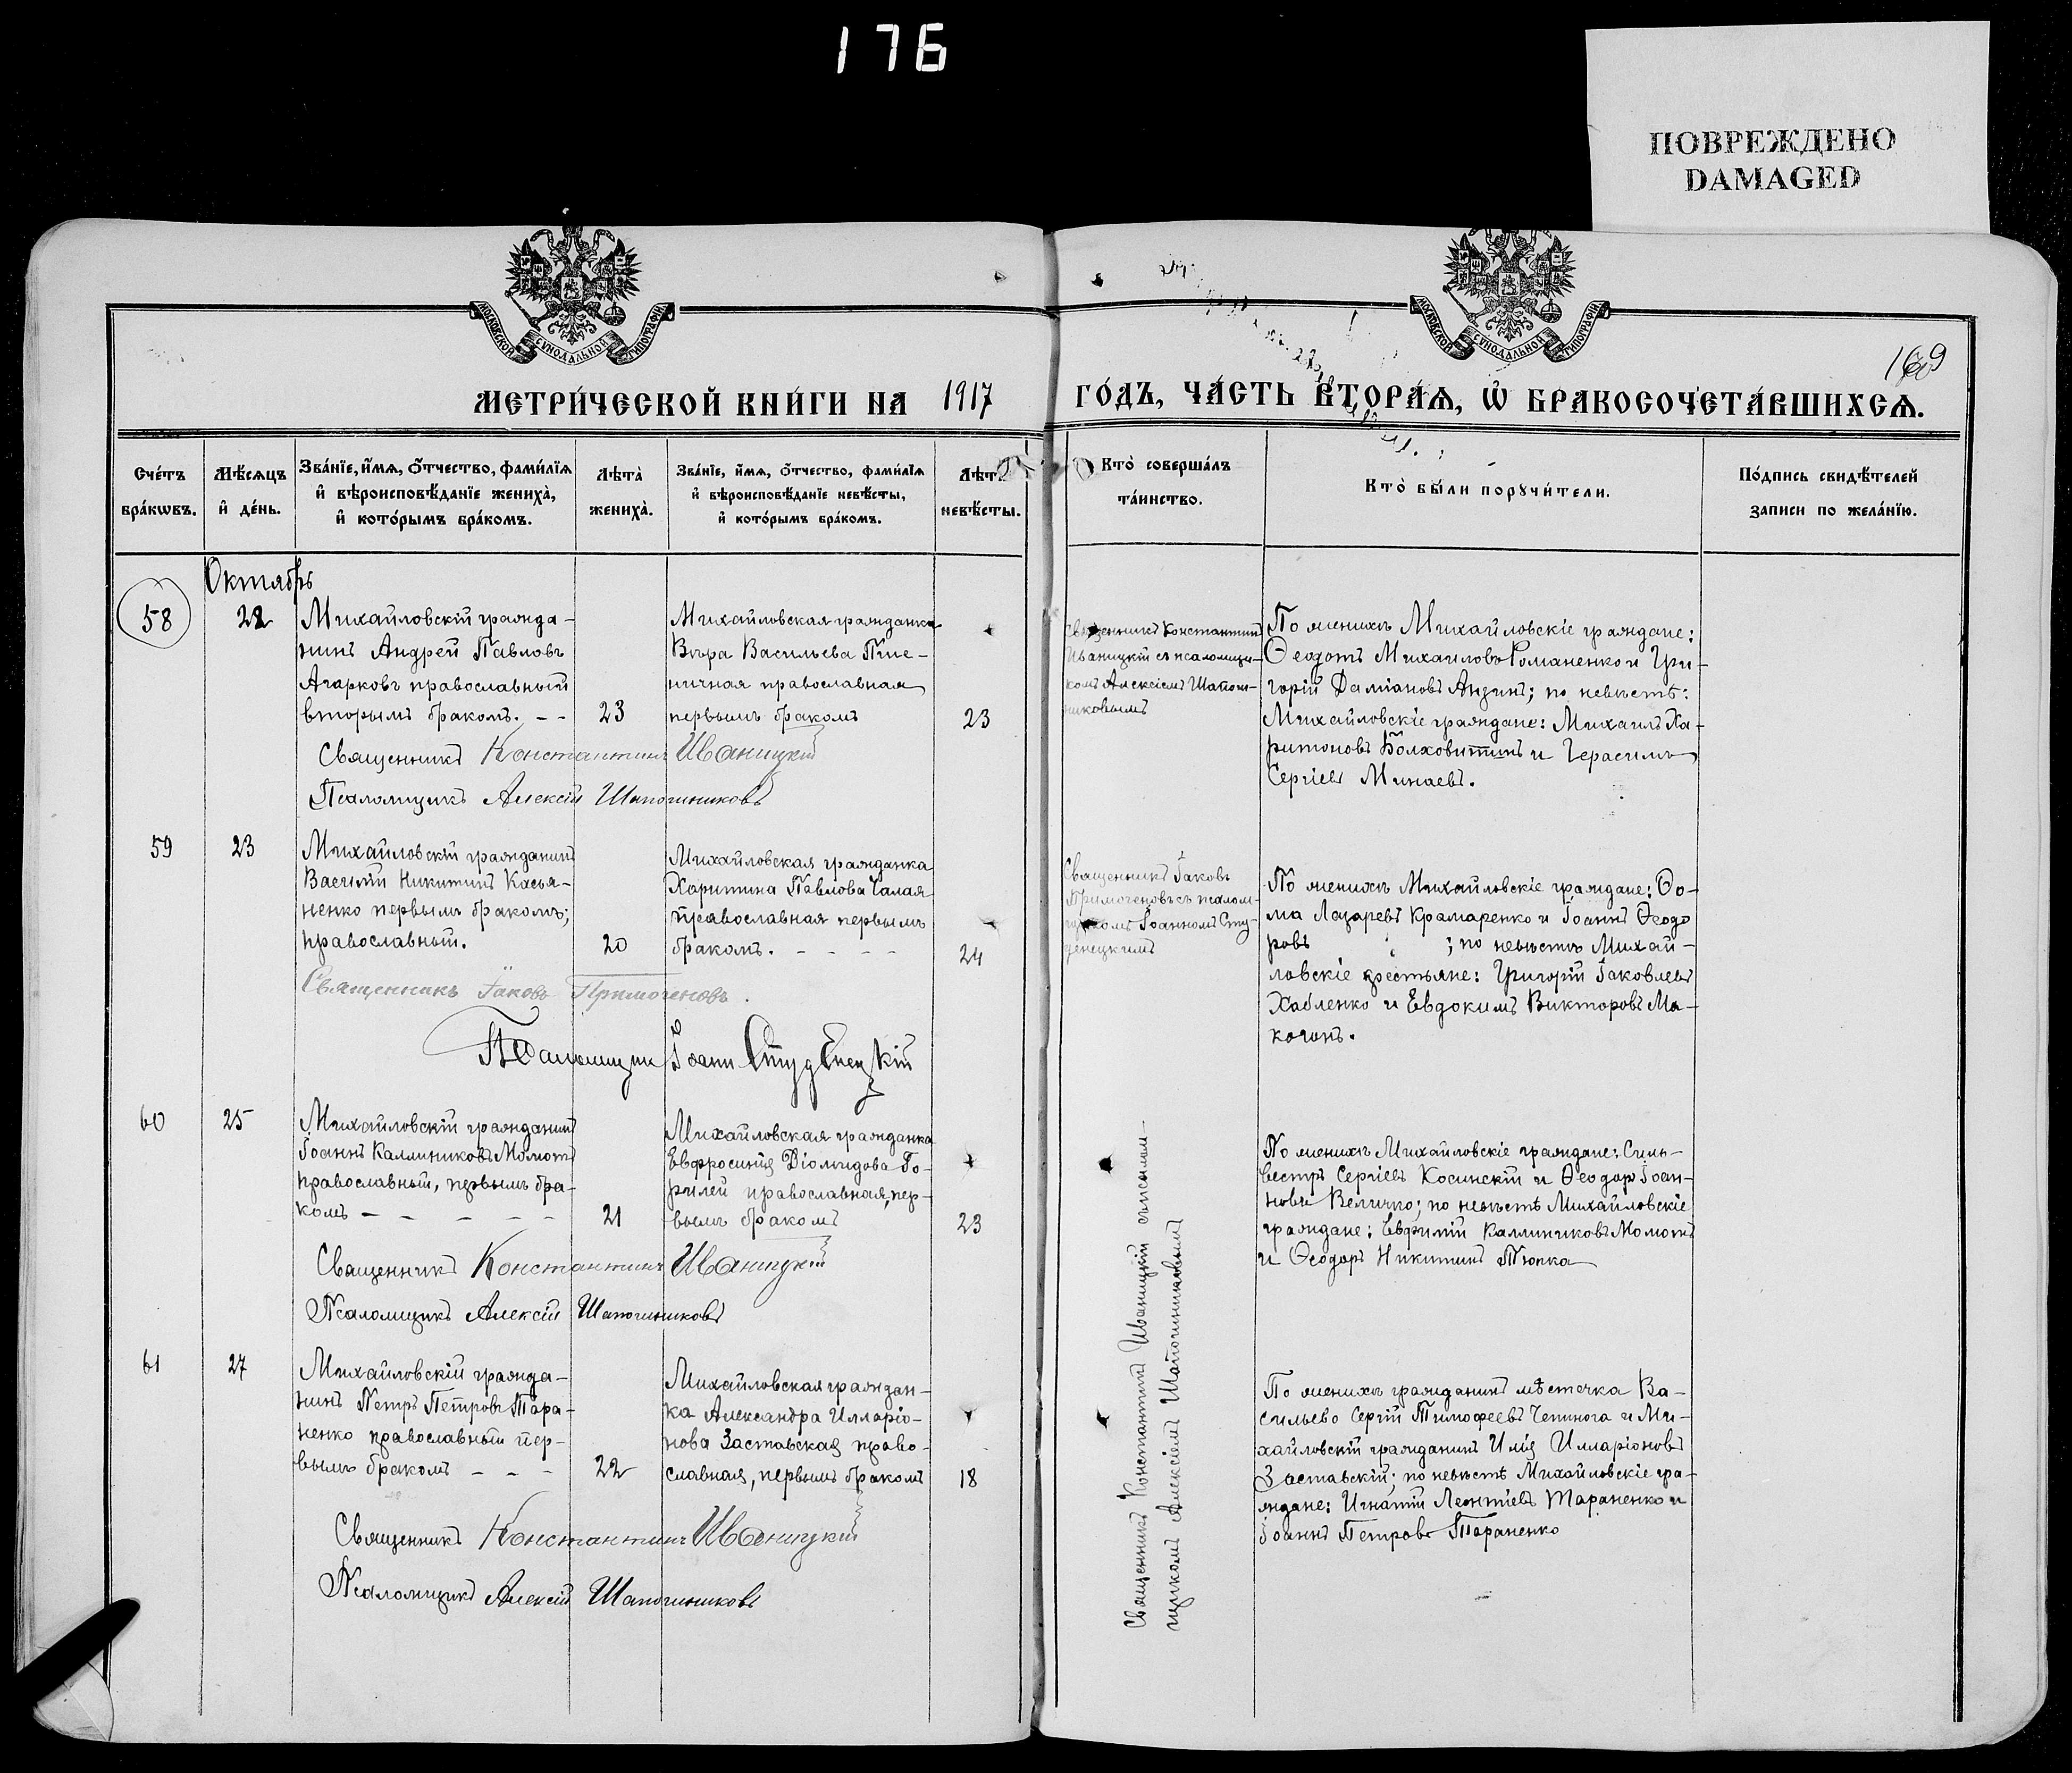 176
ПОВРЕЖДЕНО
DAMAGED
МОСКОВСКОЙ СѴНОДАЛЬНОЙ ТИПОГРАФІИ
МОСКОВСКОЙ СѴНОДАЛЬНОЙ ТИПОГРАФІИ
169
МЕТРИ́ЧЕСКОЙ КНИ́ГИ НА 1917 ГО́ДЪ, ЧА́СТЬ ВТОРА́Ѧ, Ѿ БРАКОСОЧЕТА́ВШИХСѦ.
Сче́тъ
бра́кѡвъ.
Мѣ́сѧцъ
и҆ де́нь.
Зва́нїе, и҆́мѧ, ѻ҆́тчество, фами́лїѧ
и҆ вѣроисповѣ́данїе жениха̀,
и҆ кото́рымъ бра́комъ.
Лѣта̀
жениха̀.
Зва́нїе, и҆́мѧ, ѻ҆́тчество, фами́лїѧ
и҆ вѣроисповѣ́данїе невѣ́сты,
и҆ кото́рымъ бра́комъ.
Лѣт
невѣ́сты.
Кто̀ соверша́лъ
та́инство.
Кто̀ бы́ли порꙋчи́тели.
По́дпись свидѣ́телей
записи по жела́нїю.
Октябрь
58
22
Михайловскій гражда-
нинъ Андрей Павловъ
Агарковъ православный
вторымъ бракомъ. – –
23
Михайловская гражданка
Вѣра Васильева Пше-
ничная православная
первымъ бракомъ
23
Священникъ Константинъ
Иваницкій съ псаломщи-
комъ Алексіемъ Шапош-
никовымъ
По женихѣ Михайловскіе граждане:
Ѳеодотъ Михаиловъ Романенко и Гри-
горій Даміановъ Анзинъ; по невѣстѣ:
Михайловскіе граждане: Михаилъ Ха-
ритоновъ Болховитинъ и Герасимъ
Сергіевъ Минаевъ.
Священникъ Константинъ Иваницкій
Псаломщикъ Алексій Шапошниковъ
59
23
Михайловскій гражданинъ
Василій Никитинъ Касья-
ненко первымъ бракомъ;
православный.
20
Михайловская гражданка
Харитина Павлова Чалая
православная первымъ
бракомъ. – – – –
24
Священникъ Іаковъ
Примогеновъ съ псалом-
щикомъ Іоанномъ Сту-
денецкимъ
По женихѣ Михайловскіе граждане: Ѳо-
ма Лазаревъ Крамаренко и Іоаннъ Ѳеодо
ровъ ; по невѣстѣ Михай-
ловскіе крестьяне: Григорій Іаковлевъ
Хабленко и Евдокимъ Викторовъ Ма-
когонъ.
Священникъ Іаковъ Примогеновъ.
Псаломщик Іоанн Студенецкій
60
25
Михайловскій гражданинъ
Іоаннъ Каллиниковъ Момотъ
православный, первымъ бра-
комъ – – – – –
21
Михайловская гражданка
Евфросинія Діомидова Го-
рилей православная, пер-
вымъ бракомъ
23
По женихѣ Михайловскіе граждане: Силь-
вестръ Сергіевъ Косинскій и Ѳеодоръ Іоан-
новъ Величко; по невѣстѣ Михайловскіе
граждане: Евфимій Каллиниковъ Момотъ
и Ѳеодоръ Никитинъ Тюпка
Священникъ Константинъ Иваницкій
Псаломщикъ Алексій Шапошниковъ
Священникъ Константинъ Иваницкій съ псалом-
щикомъ Алексіемъ Шапошниковымъ
61
27
Михайловскій гражда-
нинъ Петръ Петровъ Тара-
ненко православный пер-
вымъ бракомъ – – –
22
Михайловская граждан-
ка Александра Илларіо-
нова Заставская право-
славная, первымъ бракомъ
18
По женихѣ гражданинъ мѣстечка Ва-
сильево Сергій Тимофеевъ Чепинога и Ми-
хайловскій гражданинъ Илія Илларіоновъ
Заставскій; по невѣстѣ Михайловскіе гра-
ждане: Игнатій Леонтіевъ Тараненко и
Іоаннъ Петровъ Тараненко
Священникъ Константинъ Иваницкій
Псаломщикъ Алексій Шапошниковъ